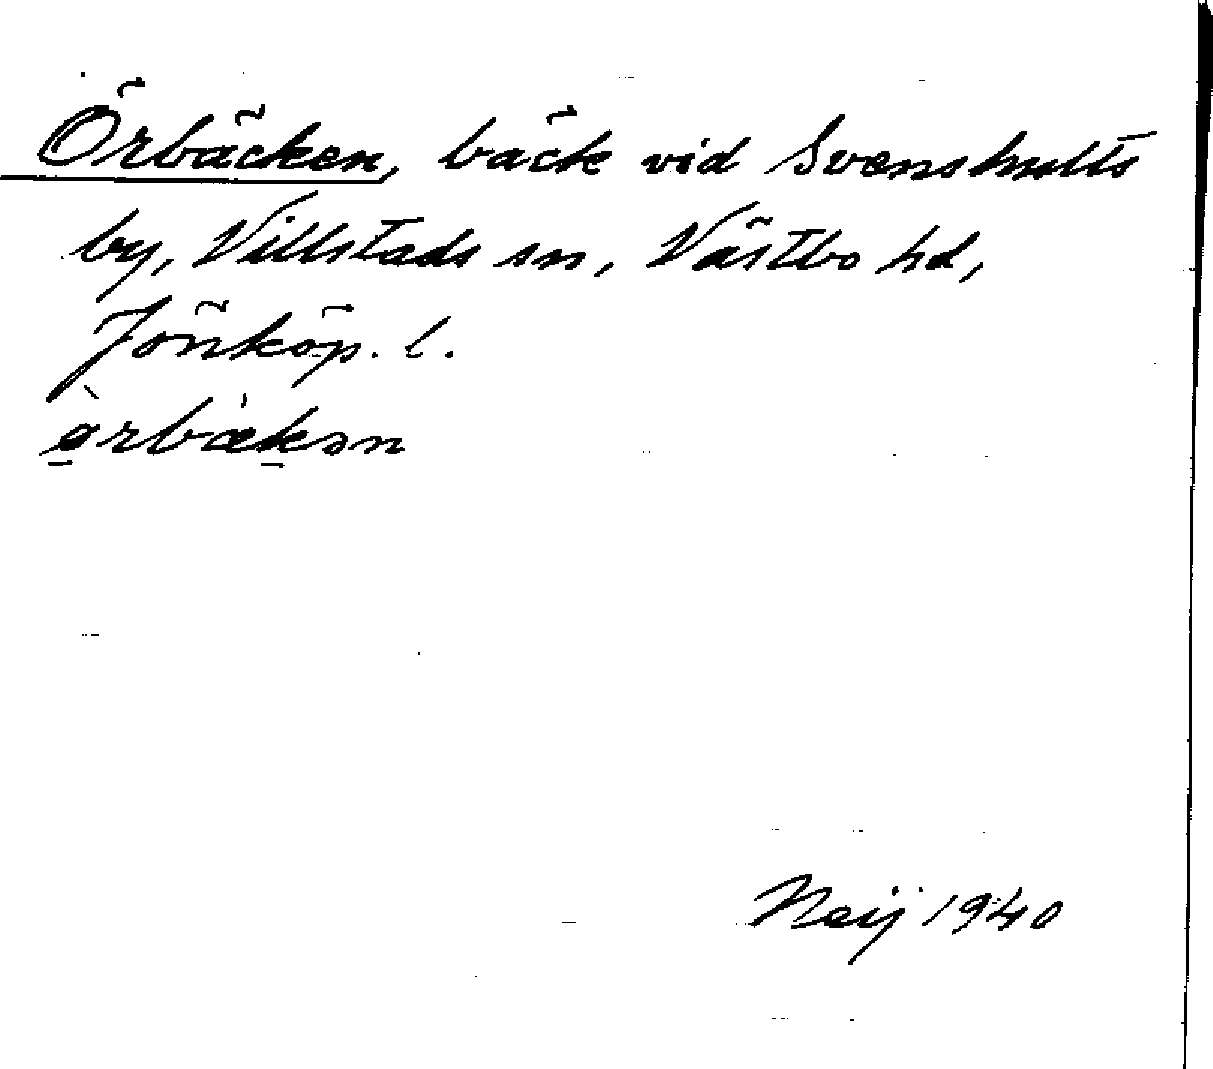 Örbäcken, bäck vid Svenshults
by, Villstads sn, Västbo hd,
Jönköp. l.
ø̠̀rbæ̀k̠ən
Neij 1940